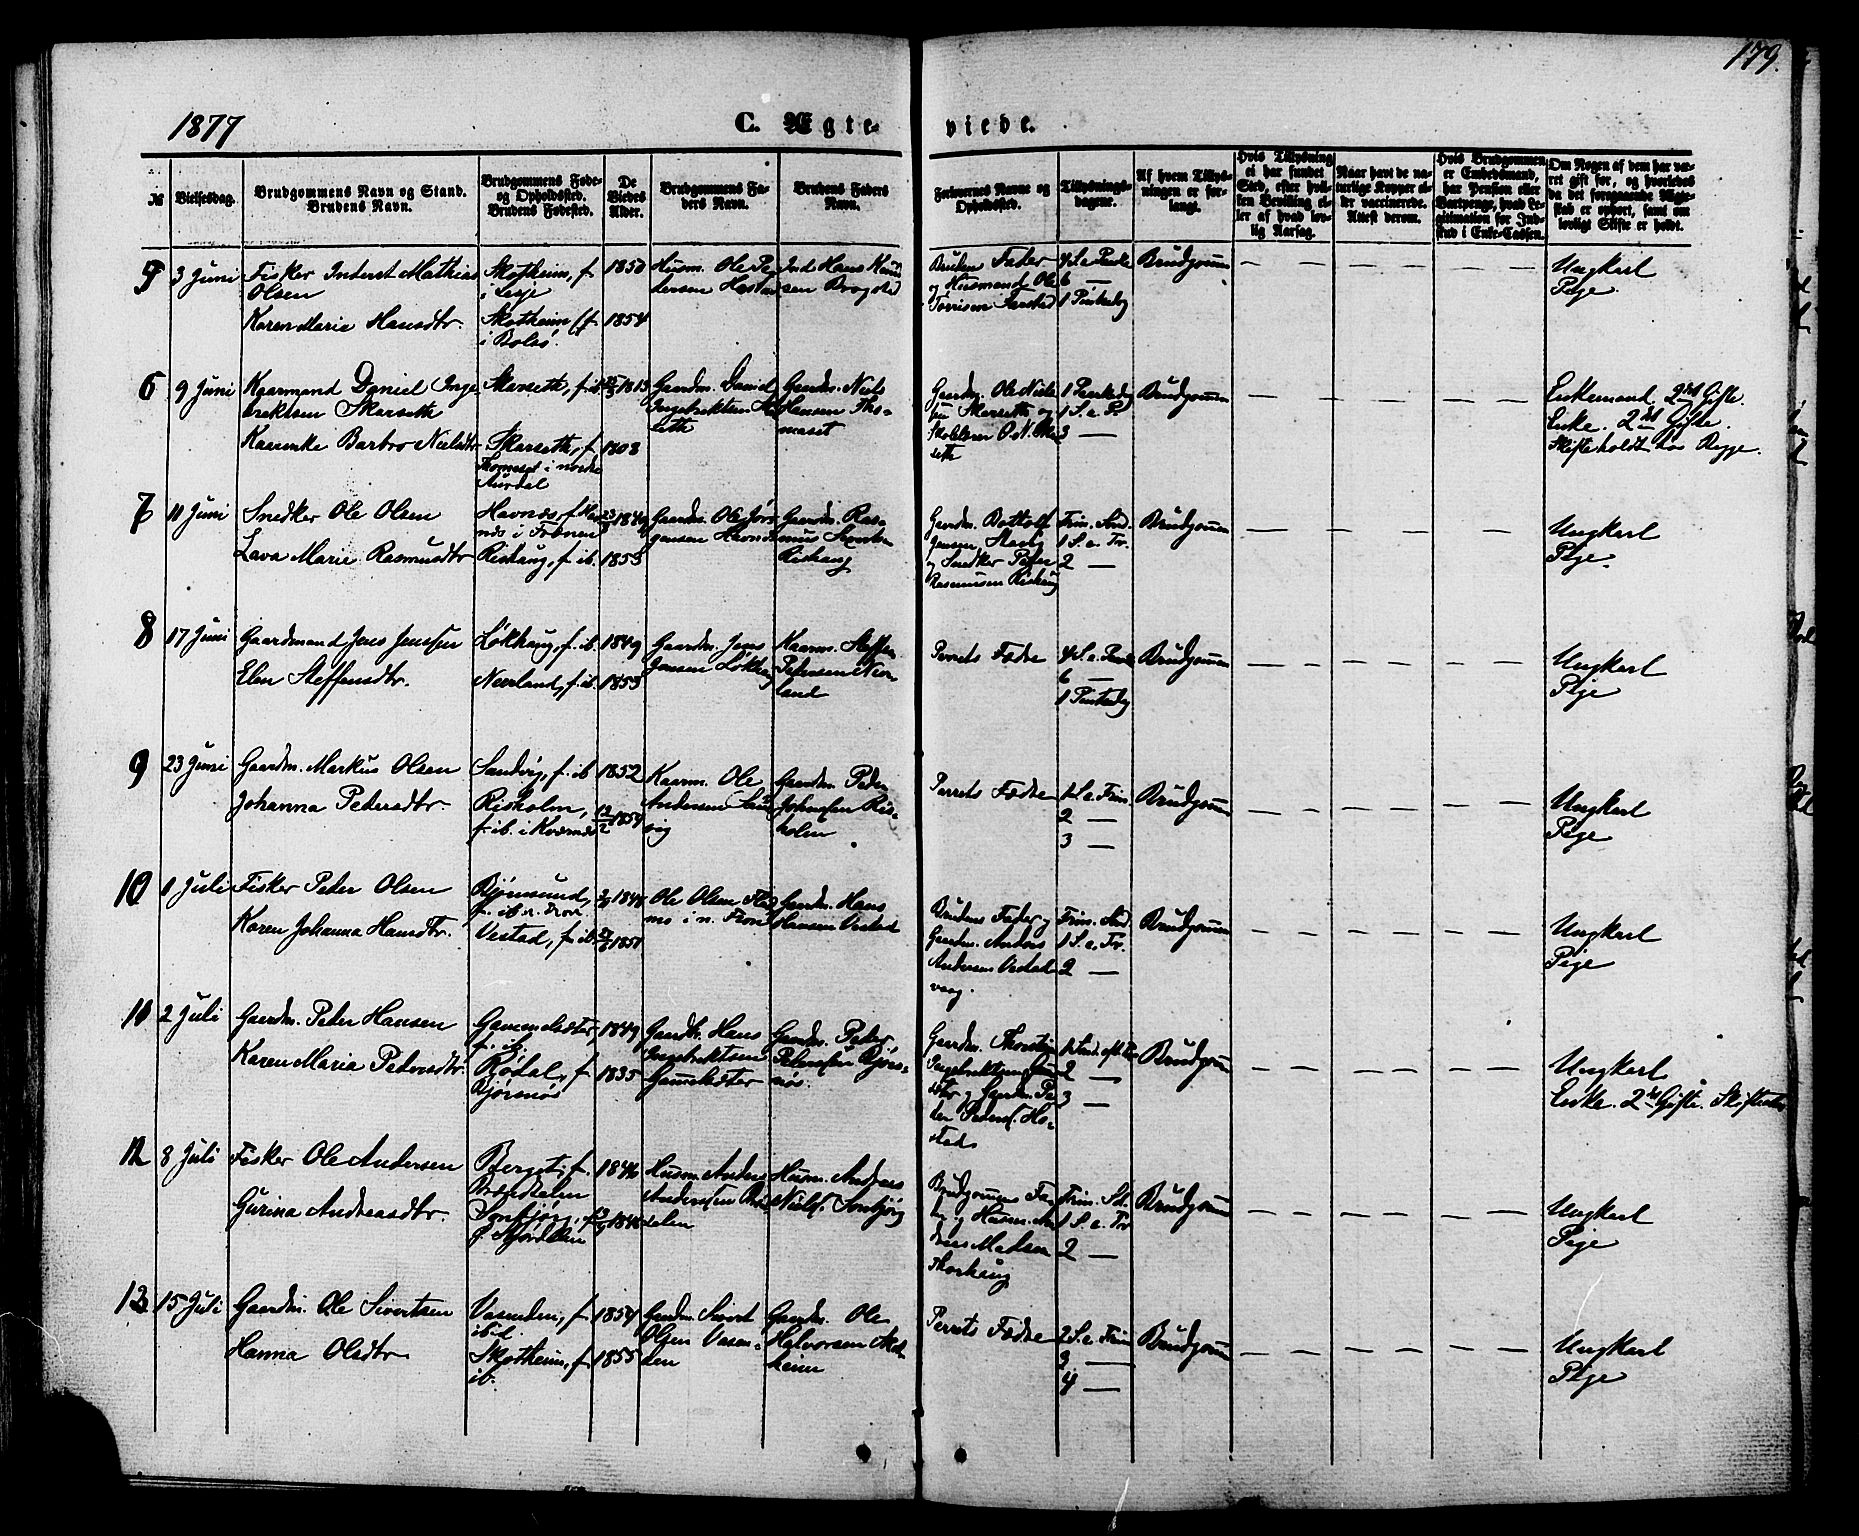 179.
1877
C. Ægte-
viede.
№
Vielsesdag.
Brudgommens Navn og Stand.
Brudens Navn.
Brudgommens Føde-
og Opholdssted.
Brudens Fødested.
De
Viedes
Alder.
Brudgommens Fa-
ders Navn.
Brudens Faders
Navn.
Forlovernes Navne og
Opholdssted.
Tillysnings-
dagene.
Af hvem Tillys-
ningen er for-
langt.
Hvis Tillysning
ei har fundet
Sted, efter hvil-
ken Bevilling el-
ler af hvad lov-
lig Aarsag.
Naar havt de na-
turlige Kopper el-
ler vaccinerede.
Attest derom.
Hvis Brudgommen
er Embedsmand,
har Pension eller
Vartpenge, hvad Le-
gitimation for Ind-
skud i Enke-Cassen.
Om Nogen af dem har væ-
ret gift før, og hvorledes
da det foregaaende Ægte-
skab er ophørt, samt om
lovligt Skifte er holdt.
5
3 Juni
Fisker Mathias
Olsen
Karen Marie Hansdtr.
Skotheim, f.
i Lesje
Skotheim, f.
i Bolsø
1850
1854
Husm. Ole Pe-
dersen
Hans
sen
Brudens Fader
og Husmand Ole
4 S. e. Paaske
6 —
1 Pintsedag
Brudgommen
Ungkarl
Pige.
6
9 Juni
Kaarmand Daniel Inge-
brektsen Skarseth
Kaarenke Barbro Nielsdtr
Skarseth, f. ib.
Skarseth, f.
Thomeset i nordre
Aurdal
1813
1808
Gaardm. David
Ingebrektsen
Gaardm. Niels
Hansen Tho-
meset
Gaardm. Ole Niel-
sen Skarseth og
1 Pintsedag
1 S. e. P.
3 —
Brudgommen
Enkemand 2det Gifte.
Enke. 2det Gifte.
Skifte holdt hos Begge.
7
11 Juni
Snedker Ole Olsen
Lava Marie Rasmusdtr
Havnæs, f. Hav-
næs i Frænen
Rishaug, f. ib.
1849
1853
Gaardm. Ole Jør-
gensen Havnæs
Gaardm. Ras-
mus Sivertsen
Rishaug
Gaardm. Bottolf
Jensen
og Snedker Peter
Rasmussen Rishaug
Trin. Sønd.
1 S. e. Tr.
2 —
Brudgommen
Ungkarl
Pige.
8
17 Juni
Gaardmand Jens Jensen
Elen Steffensdtr.
Løkhaug, f. ib.
Neerland, f. ib.
1849
1853
Gaardm. Jens
Jensen Løkhaug
Kaarm. Steffen
Petersen Neer-
land
Parrets Fædre
4 S. e. Paaske
6 —
1 Pintsedag
Brudgommen
Ungkarl
Pige
9
23 Juni
Gaardm. Markus Olsen
Johanna Pedersdtr.
Sandvig, f. ib.
Risholm,
f. ib. i Kværnæs
1852
12/2 1854
Kaarm. Ole
Andersen Sand-
vig
Gaardm. Peder
Johnsen Ris-
holm
Parrets Fædre
1 S. e. Trin.
2 —
3 —
Brudgommen
Ungkarl
Pige
10
1 Juli
Fisker Peter Olsen
Karen Johanna Hansdtr.
Bjørnsund,
Vestad, f. ib.
Ole Olsen
Gaardm. Hans
Hansen Vestad
Brudens Fader og
Gaardm. Anders
Andersen Vestad-
vaag.
Trin. Sønd.
1 S. e. Tr.
2 —
Brudgommen
Ungkarl
Pige
11
2 Juli
Gaardm. Peder Hansen
Karen Marie Pedersdtr.
Gammelsæter,
f. ib.
Rødal, f.
Bjørsnøs
1849
1835
Gaardbr. Hans
Ingebrektsen
Gamelsæter
Gaardm. Peder
Petersen Bjørs-
nøs.
Gaardm. Thorstein
Ingebrektsen
sæter og Gaardm. Pe-
der Pedersen Ho-
stad
2 —
3 —
Brudgommen
Ungkarl
Enke. 2det Gifte.
12
8 Juli
Fisker Ole Andersen
Gurina Andreasdtr.
Berget, f.
Brændtelen
1846
Husm. Anders
Andersen
Husm. Andreas
Nielsen
Brudgommens Fa-
der og Husm. An-
dreas Madsen
Skorhaug
Trin. Sd.
1 S. e. Tr
2 —
Brudgommen
Ungkarl
Pige
13
15 Juli
Gaardm. Ole Sivertsen
Hanna Olsdtr.
Vasenden, f.
ibid.
Skotheim, f.
ib.
1854
1855
Gaardm. Sivert
Olsen Vasen-
den
Gaardm. Ole
Halvorsen Skot-
heim
Parrets Fædre
2 S. e. Trin
3 —
4 —
Brudgommen
Ungkarl
Pige